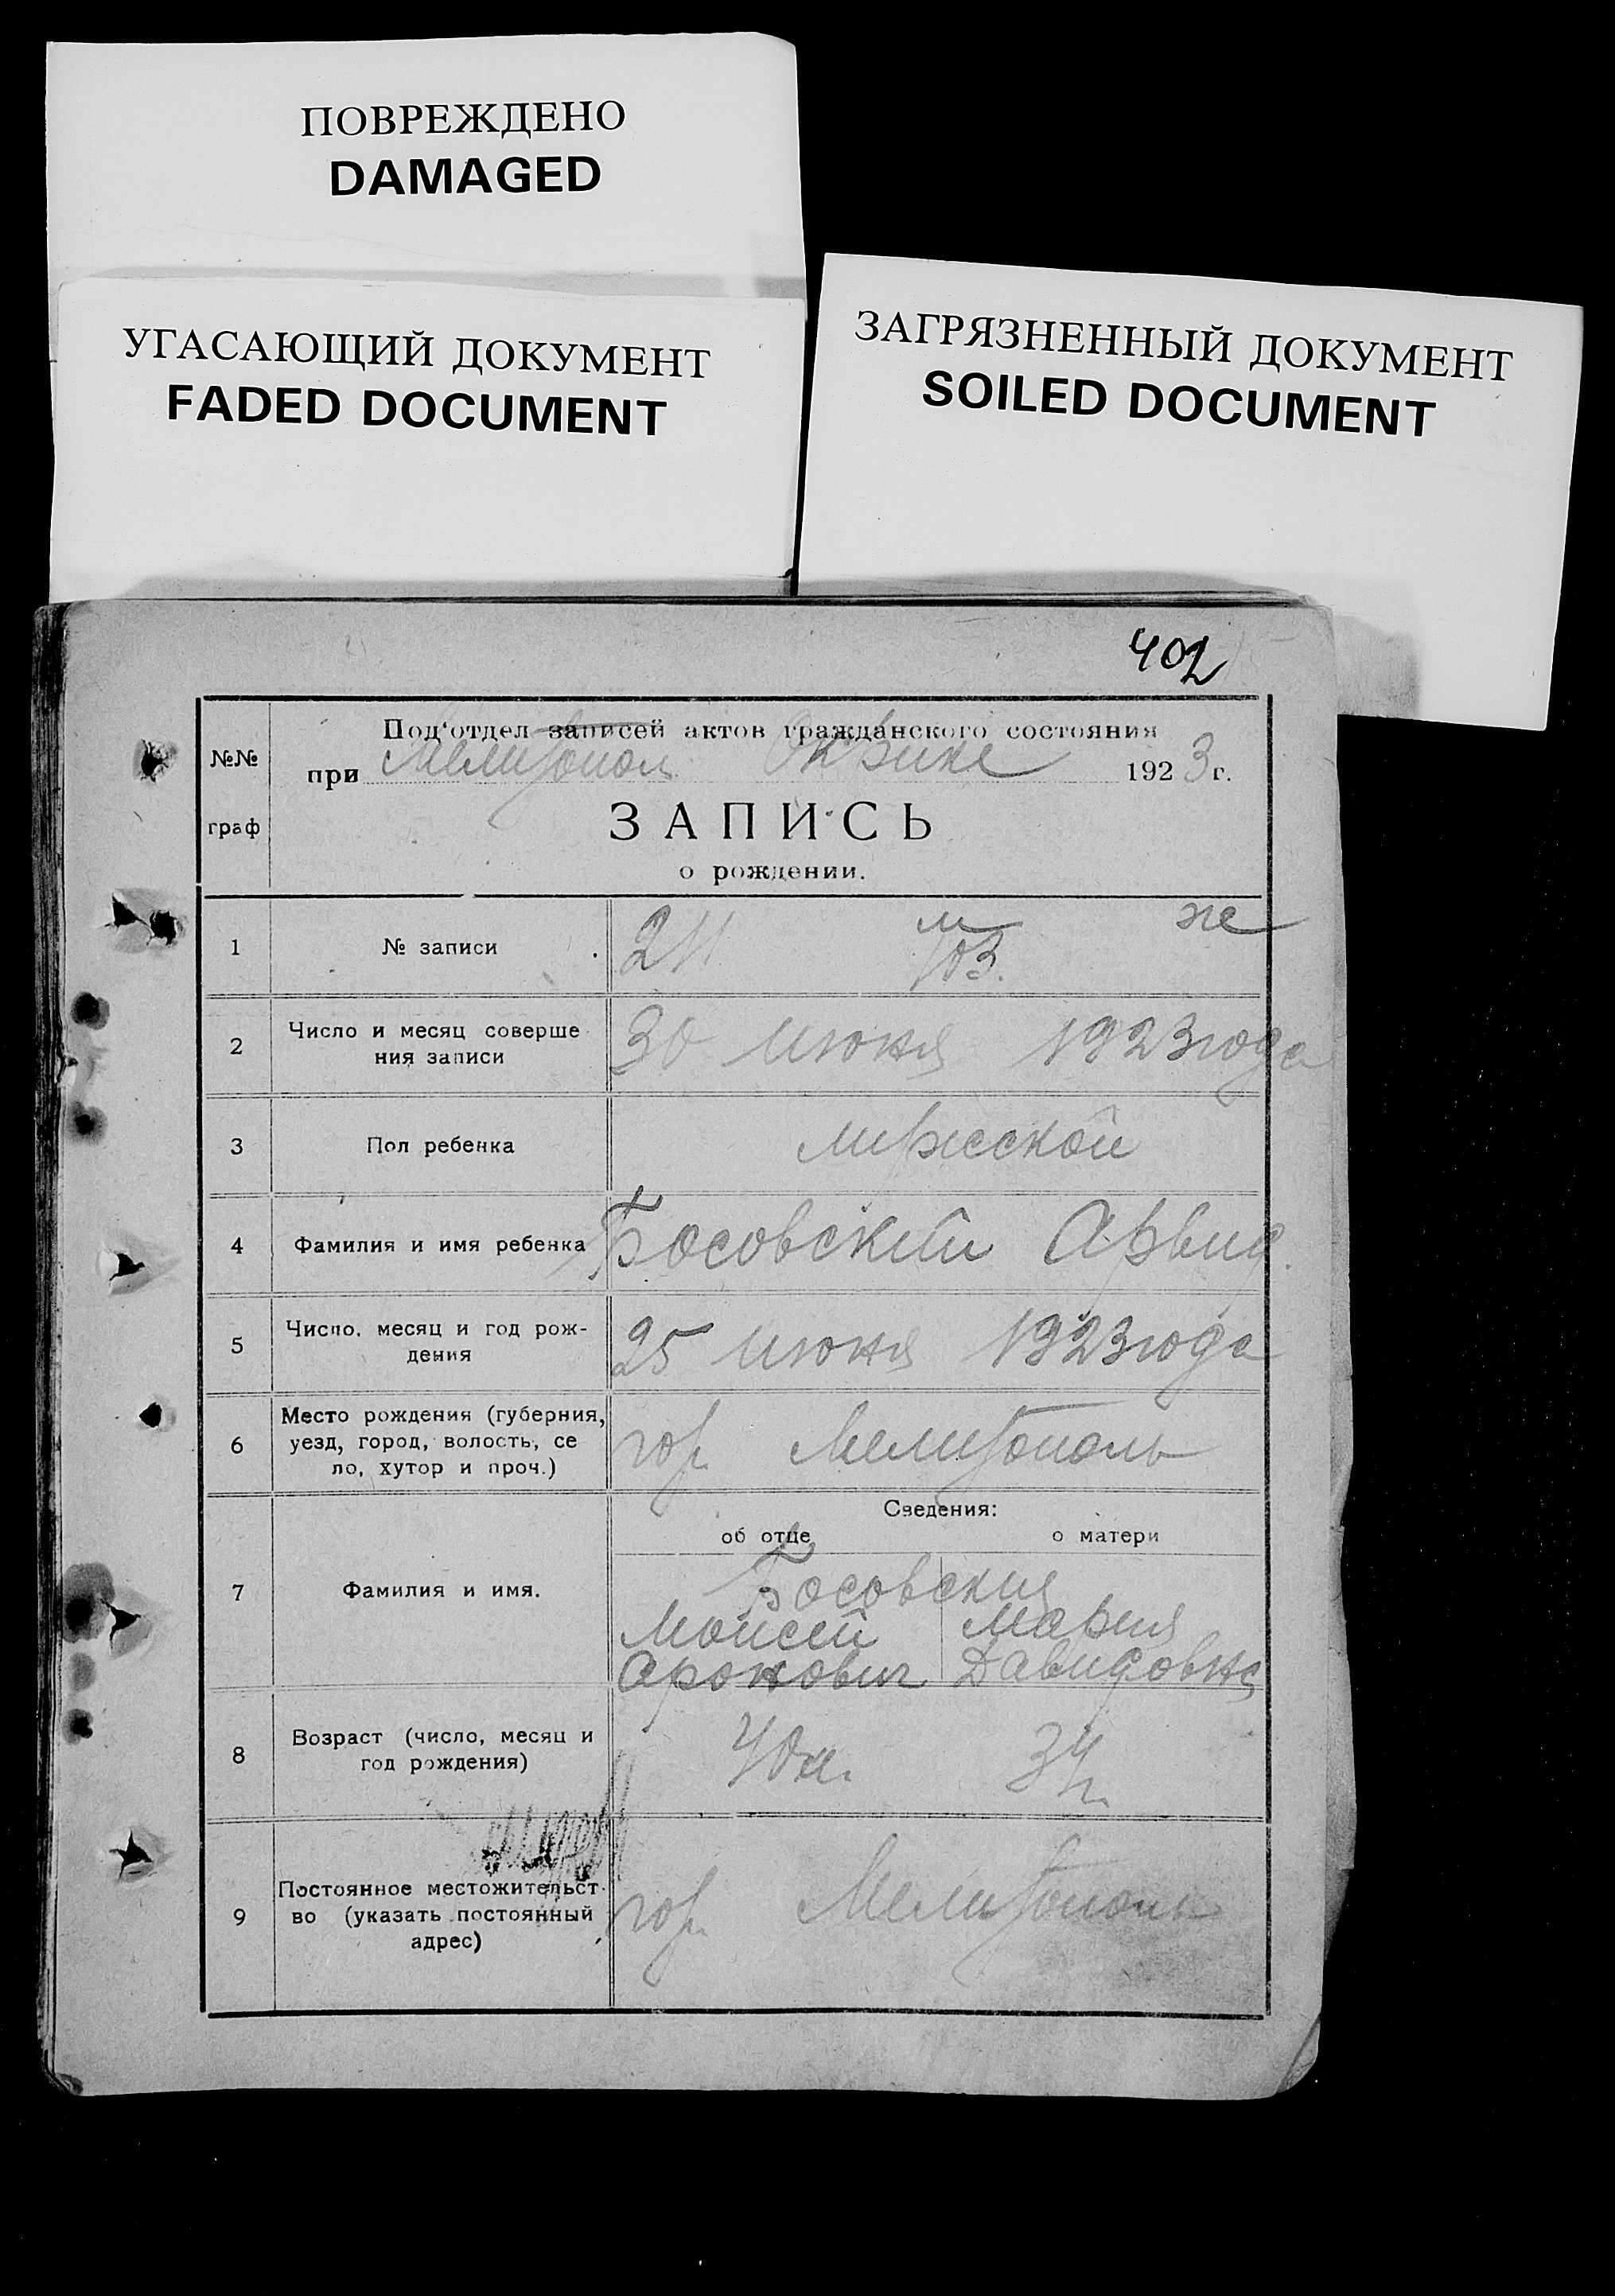 ПОВРЕЖДЕНО
DAMAGED
УГАСАЮЩИЙ ДОКУМЕНТ
FADED DOCUMENT
ЗАГРЯЗНЕННЫЙ ДОКУМЕНТ
SOILED DOCUMENT
402
№№
граф
Под'отдел записей актов гражданского состояния
при Мелитопол Окрзике 1923 г.
ЗАПИСЬ
о рождении.
1 № записи м 103. же
2 Число и месяц соверше
ния записи 30 июня 1923 года
3 Пол ребенка мужской
4 Фамилия и имя ребенка Босовский Арвид.
5 Число, месяц и год рож-
дения 25 июня 1923 года
6 Место рождения (губерния,
уезд, город, волость, се
ло, хутор и проч.) гор. Мелитополь
Сведения:
об отце о матери
7 Фамилия и имя. Босовские
Моисей Мария
Аронович Давидовна
8 Возраст (число, месяц и
год рождения) 40 л. 34 г.
9 Постоянное местожительст-
во (указать постоянный
адрес) гор. Мелитополь